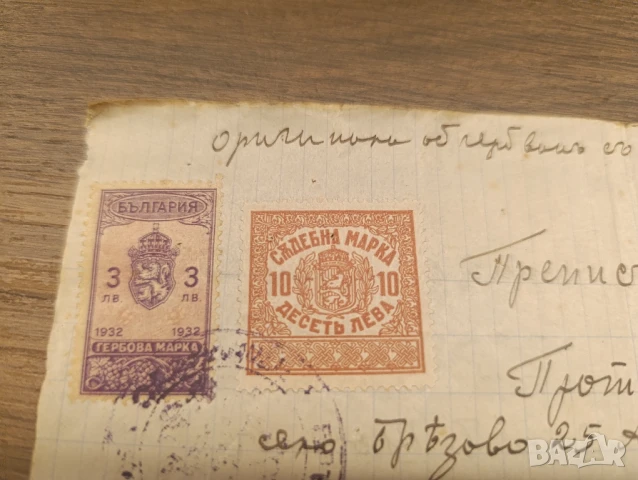 оригинала обгербванъ съ
БЪЛГАРИЯ
3 3
ЛВ. ЛВ.
1932 1932
ГЕРБОВА МАРКА
СѪДЕБНА МАРКА
10 10
ДЕСЕТЬ ЛЕВА
Препис
Прот
село Брѣзово 25
bazar.bg